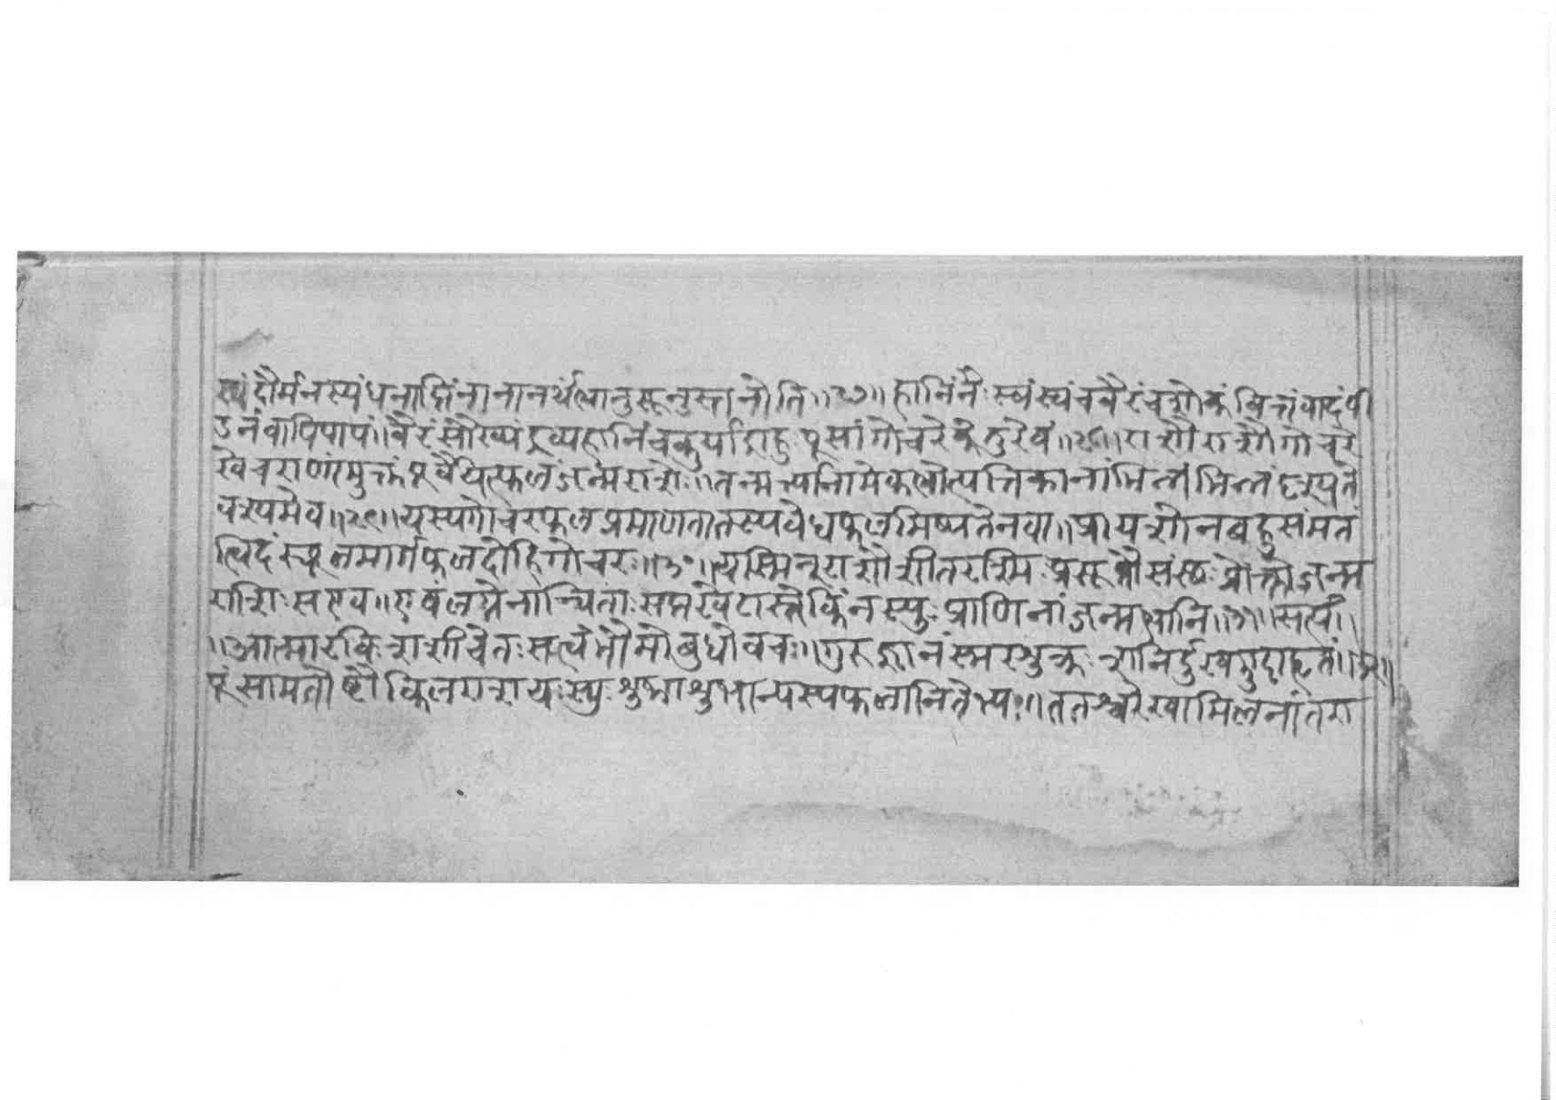 स्यं दौर्मनस्यं धनाप्तिं नानानर्थान्भानुसूनुस्तनोति ॥२७॥ हानिं नैःस्वं स्वं च वैरं च शोकं वित्तं वादं पी
डनं वापि पापं ॥ वैरं सौख्यं द्रव्यहानिं च कुर्याद्राहुः पुंसां गोचरे केतुरेवं ॥२८॥ राशौ राशौ गोचरे
खेचराणामुक्तं पूर्वैर्यत्फलं जन्मराशेः ॥ तन्मर्त्यानामेकभोत्पत्तिकानां भिन्नं भिन्नं दृश्यते
वश्यमेव ॥२९॥ यस्य गोचरफलप्रमाणता तस्य वेधफलमिष्यते नवा ॥ प्रायशो न बहुसंमतं
त्विदं स्थूलमार्गफलदो हि गोचरः ॥३०॥ यस्मिन् राशौ शीतरश्मिः प्रसूतौ संस्थः प्रोक्तो जन्म
राशिः स एव ॥ एवं लग्नेनान्विताः सप्तखेटास्तैः किं न स्युः प्राणिनां जन्मभानि ॥३१॥ सत्यं ॥
॥आत्मा रविः शशी चेतः सत्त्वं भौमो बुधो वचः ॥ गुरुर्ज्ञानं स्मरः शुक्रः शनिर्दुःखमुदाहृतं ॥३२॥
पुंसामतोष्टौ किल राशयः स्युः शुभाशुभान्यस्य फलानि तेभ्यः ॥ ततश्च रेखामिलनांतरा